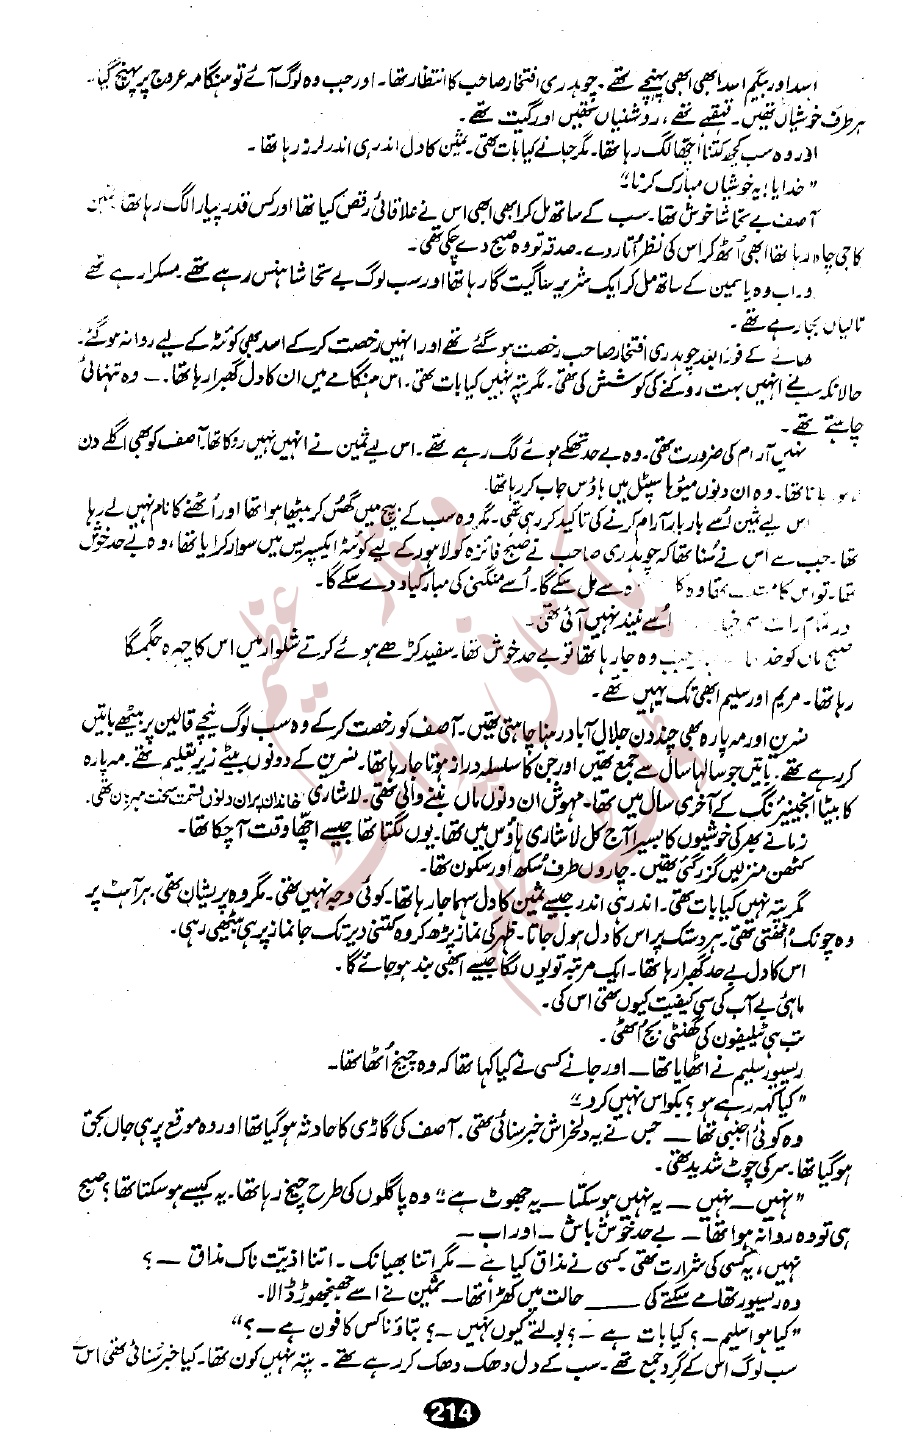 اسد اور بیگم اسد ابھی ابھی پہنچے تھے۔ چوہدری افتخار صاحب کا انتظار تھا۔ اور جب وہ لوگ آئے تو ہنگامہ عروج پر پہنچ گیا۔
ہر طرف خوشیاں تھیں۔ قہقہے تھے، روشنیاں تھیں اور گیت تھے۔
اور وہ سب کچھ کتنا اچھا لگ رہا تھا۔ مگر جانے کیا بات تھی۔ ثمین کا دل اندر ہی اندر لرز رہا تھا۔
"خدایا! یہ خوشیاں مبارک کرنا"
آصف بے تحاشا خوش تھا۔ سب کے ساتھ مل کر ابھی ابھی اس نے علاقائی رقص کیا تھا اور کس قدر پیارا لگ رہا تھا ثمین
کا جی چاہ رہا تھا ابھی اُٹھ کر اس کی نظر اُتار دے۔ صدقہ تو وہ صبح دے چکی تھی۔
اب وہ یاسمین کے ساتھ مل کر ایک شریر سا گیت گا رہا تھا اور سب لوگ بے تحاشا ہنس رہے تھے۔ مسکرا رہے تھے
تالیاں بجا رہے تھے۔
کھانے کے فوراً بعد چوہدری افتخار صاحب رخصت ہو گئے تھے اور انہیں رخصت کر کے اسد بھی کوئٹہ کے لیے روانہ ہو گئے۔
حالانکہ سب نے انہیں بہت روکنے کی کوشش کی تھی۔ مگر پتہ نہیں کیا بات تھی۔ اس ہنگامے میں ان کا دل گھبرا رہا تھا۔ — وہ تنہائی
چاہتے تھے۔
انہیں آرام کی ضرورت تھی۔ وہ بے حد تھکے ہوئے لگ رہے تھے۔ اس لیے ثمین نے انہیں نہیں روکا تھا۔ آصف کو بھی اگلے دن
جانا تھا۔ وہ ان دنوں میو ہاسپٹل میں ہاؤس جاب کر رہا تھا۔
اس لیے ثمین اُسے بار بار آرام کرنے کی تاکید کر رہی تھی۔ مگر وہ سب کے بیچ میں گھُس کر بیٹھا ہوا تھا اور اُٹھنے کا نام نہیں لے رہا
تھا۔ جب سے اس نے سُنا تھا کہ چوہدری صاحب نے صبح فائزہ کو لاہور کے لیے کوئٹہ ایکسپریس میں سوار کرایا تھا، وہ بے حد خوش
تھا۔ تو اس کا وہ سے مل سکے گا۔ اُسے منگنی کی مبارکباد دے سکے گا۔
اُسے نیند نہیں آئی تھی۔
صبح ماں کو جب وہ جا رہا تھا تو بے حد خوش تھا۔ سفید کڑھے ہوئے کرتے شلوار میں اس کا چہرہ جگمگا
رہا تھا۔ مریم اور سلیم ابھی تک یہیں تھے۔
نسرین اور مہ پارہ بھی چند دن جلال آباد رہنا چاہتی تھیں۔ آصف کو رخصت کر کے وہ سب لوگ نیچے قالین پر بیٹھے باتیں
کر رہے تھے۔ باتیں جو سالہا سال سے جمع تھیں اور جن کا سلسلہ دراز ہوتا جا رہا تھا۔ نسرین کے دونوں بیٹے زیر تعلیم تھے۔ مہ پارہ
کا بیٹا انجینیرنگ کے آخری سال میں تھا۔ مہوش ان دنوں ماں بننے والی تھی۔ لاشاری خاندان پر ان دنوں قسمت سخت مہربان تھی۔
زمانے بھر کی خوشیوں کا بسیرا آج کل لاشاری ہاؤس میں تھا۔ یوں لگتا تھا جیسے اچھا وقت آ چکا تھا۔
کٹھن منزلیں گزر گئی تھیں۔ چاروں طرف سُکھ اور سکون تھا۔
مگر پتہ نہیں کیا بات تھی۔ اندر ہی اندر جیسے ثمین کا دل سہما جا رہا تھا۔ کوئی وجہ نہیں تھی۔ مگر وہ پریشان تھی۔ ہر آہٹ پر
وہ چونک اُٹھتی تھی۔ ہر دستک پر اس کا دل ہول جاتا۔ ظہر کی نماز پڑھ کر وہ کتنی دیر تک جا نماز پر ہی بیٹھی رہی۔
اس کا دل بے حد گھبرا رہا تھا۔ ایک مرتبہ تو یوں لگا جیسے ابھی بند ہو جائے گا۔
ماہئ بے آب کی سی کیفیت کیوں تھی اس کی۔
تب ہی ٹیلیفون کی گھنٹی بج اُٹھی۔
ریسیور سلیم نے اٹھایا تھا — اور جانے کسی نے کیا کہا تھا کہ وہ چیخ اُٹھا تھا۔
"کیا کہہ رہے ہو؟ بکواس نہیں کرو۔"
وہ کوئی اجنبی تھا — جس نے یہ دلخراش خبر سنائی تھی۔ آصف کی گاڑی کا حادثہ ہو گیا تھا اور وہ موقع پر ہی جاں بحق
ہو گیا تھا۔ سر کی چوٹ شدید تھی۔
"نہیں — نہیں — یہ نہیں ہو سکتا — یہ جھوٹ ہے" وہ پاگلوں کی طرح چیخ رہا تھا۔ یہ کیسے ہو سکتا تھا؟ صبح
ہی تو وہ روانہ ہوا تھا — بے حد خوش باش — اور اب —
نہیں، یہ کسی کی شرارت تھی۔ کسی نے مذاق کیا ہے — مگر اتنا بھیانک۔ اتنا اذیت ناک مذاق —؟
وہ ریسیور تھامے سکتے کی —— حالت میں کھڑا تھا — ثمین نے اسے جھنجھوڑ ڈالا۔
"کیا ہوا سلیم —؟ کیا بات ہے —؟ بولتے کیوں نہیں —؟ بتاؤ نا کس کا فون ہے —؟"
سب لوگ اس کے گرد جمع تھے۔ سب کے دل دھک دھک کر رہے تھے۔ پتہ نہیں کون تھا۔ کیا خبر سنائی تھی اس نے
214